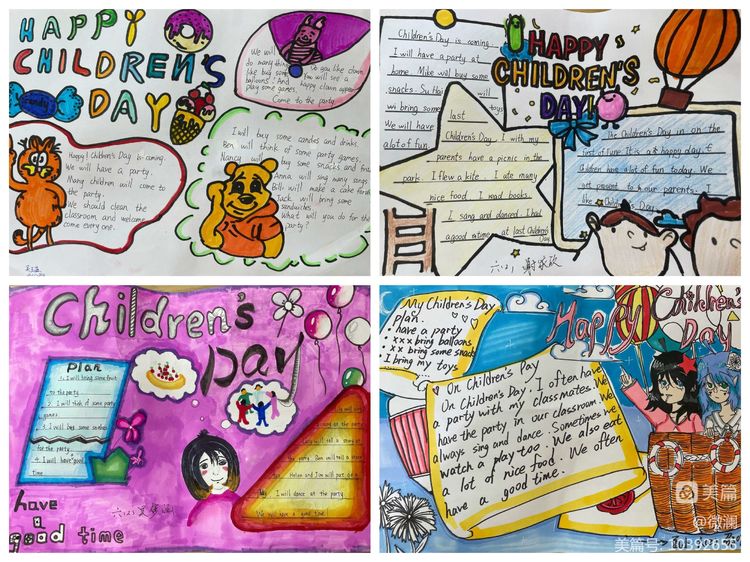 HAPPY
CHILDREN'S
DAY
candy
We will
do many things
like buy some
balloons. And
play some games.
so you like clown
You will see a
happy clown appear
Come to the party
Happy! Children's Day is coming.
We will have a party.
Many children will come to
the party.
We should clean the
classroom and welcome
come every one.
I will buy some candies and drinks.
Ben will think of some party games.
Nancy will buy some snacks and fruit
Anna will sing many songs
Bill will make a cake for us
Jack will bring some
sandwiches.
What will you do for the
party?
Children's Day is coming.
I will have a party at
home. Mike will buy some
snacks. Su Hai will
bring some toys
We will have
a lot of fun.
HAPPY
CHILDREN'S
DAY!
last
Children's Day. I with my
parents have a picnic in the
park. I flew a kite. I ate many
nice food. I read books.
I sang and danced. I had
a good time at last Children's
Day
The Children's Day in on the
first of June. It is a happy day.
children have a lot of fun today. We
get present to our parents. I
like Children's Day.
六(2)
Children's
Day
Plan
1. I will bring some fruit
to the party
2. I will think of some party
games
3. I will buy some snakes
for the party
4. I will have good
time
tell a story at
the party
I will dance at the party
We will have a good time!
六(2)
have
a
good time
My Children's Day
plan.
have a party
xxx bring balloons
xx bring some snacks
I bring my toys
Happy Children's
Day
On Children's Day
On Children's Day. I often have
a party with my classmates. We
have the party in our classroom. We
always sing and dance. Sometimes we
watch a play too. We also eat
a lot of nice food. We often
have a good time.
美篇
@微澜
美篇号: 10392658